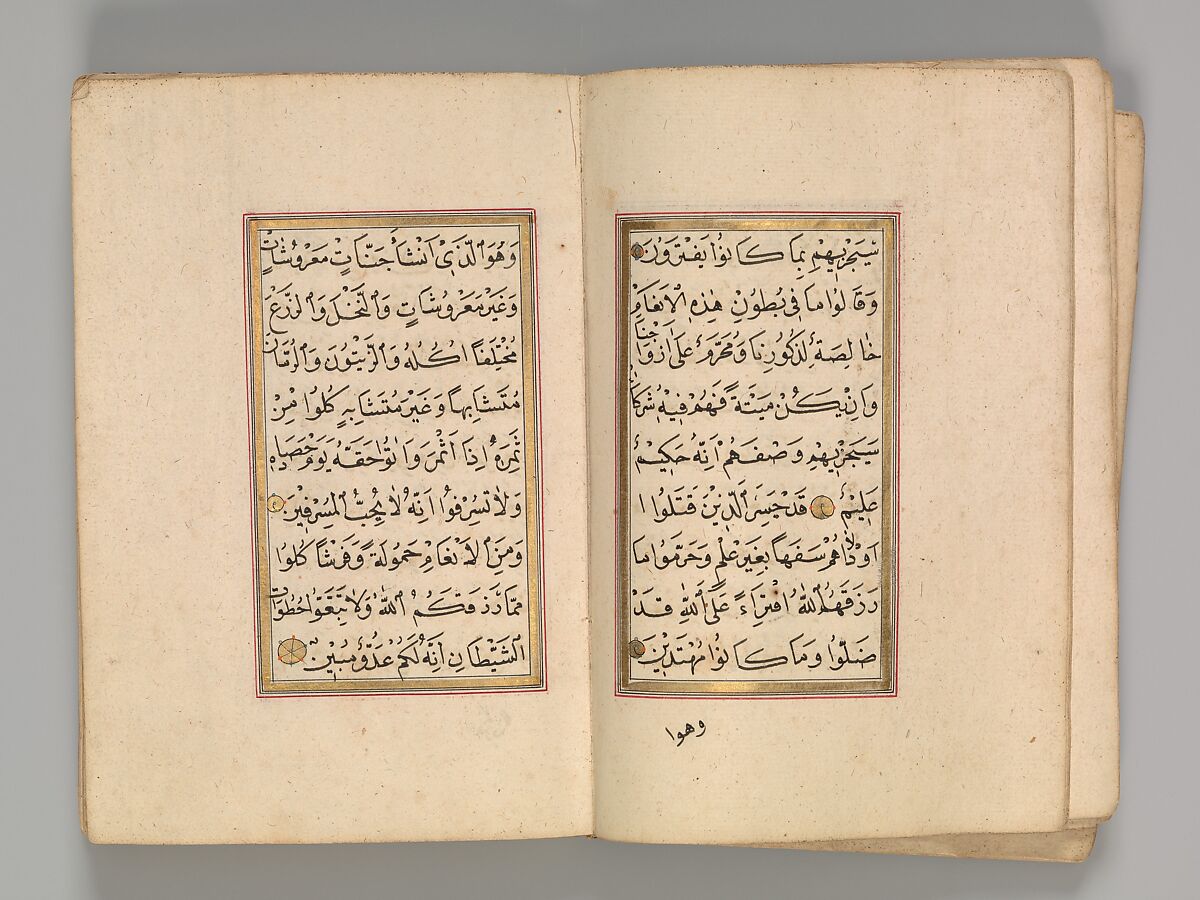 سَيَجْزِيهِمْ بِمَا كَانُوا يَفْتَرُونَ
وَقَالُوا مَا فِي بُطُونِ هٰذِهِ الْاَنْعَامِ
خَالِصَةٌ لِذُكُورِنَا وَمُحَرَّمٌ عَلٰى اَزْوَاجِنَا
وَاِنْ يَكُنْ مَيْتَةً فَهُمْ فِيهِ شُرَكَاءُ
سَيَجْزِيهِمْ وَصْفَهُمْ اِنَّهُ حَكِيمٌ
عَلِيمٌ قَدْ خَسِرَ الَّذِينَ قَتَلُوا
اَوْلَادَهُمْ سَفَهًا بِغَيْرِ عِلْمٍ وَحَرَّمُوا مَا
رَزَقَهُمُ اللّٰهُ افْتِرَاءً عَلَى اللّٰهِ قَدْ
ضَلُّوا وَمَا كَانُوا مُهْتَدِينَ
وهوا
وَهُوَ الَّذِي اَنْشَاَ جَنَّاتٍ مَعْرُوشَاتٍ
وَغَيْرَ مَعْرُوشَاتٍ وَالنَّخْلَ وَالزَّرْعَ
مُخْتَلِفًا اُكُلُهُ وَالزَّيْتُونَ وَالرُّمَّانَ
مُتَشَابِهًا وَغَيْرَ مُتَشَابِهٍ كُلُوا مِنْ
ثَمَرِهِ اِذَا اَثْمَرَ وَاٰتُوا حَقَّهُ يَوْمَ حَصَادِهِ
وَلَا تُسْرِفُوا اِنَّهُ لَا يُحِبُّ الْمُسْرِفِينَ
وَمِنَ الْاَنْعَامِ حَمُولَةً وَفَرْشًا كُلُوا
مِمَّا رَزَقَكُمُ اللّٰهُ وَلَا تَتَّبِعُوا خُطُوَاتِ
الشَّيْطَانِ اِنَّهُ لَكُمْ عَدُوٌّ مُبِينٌ